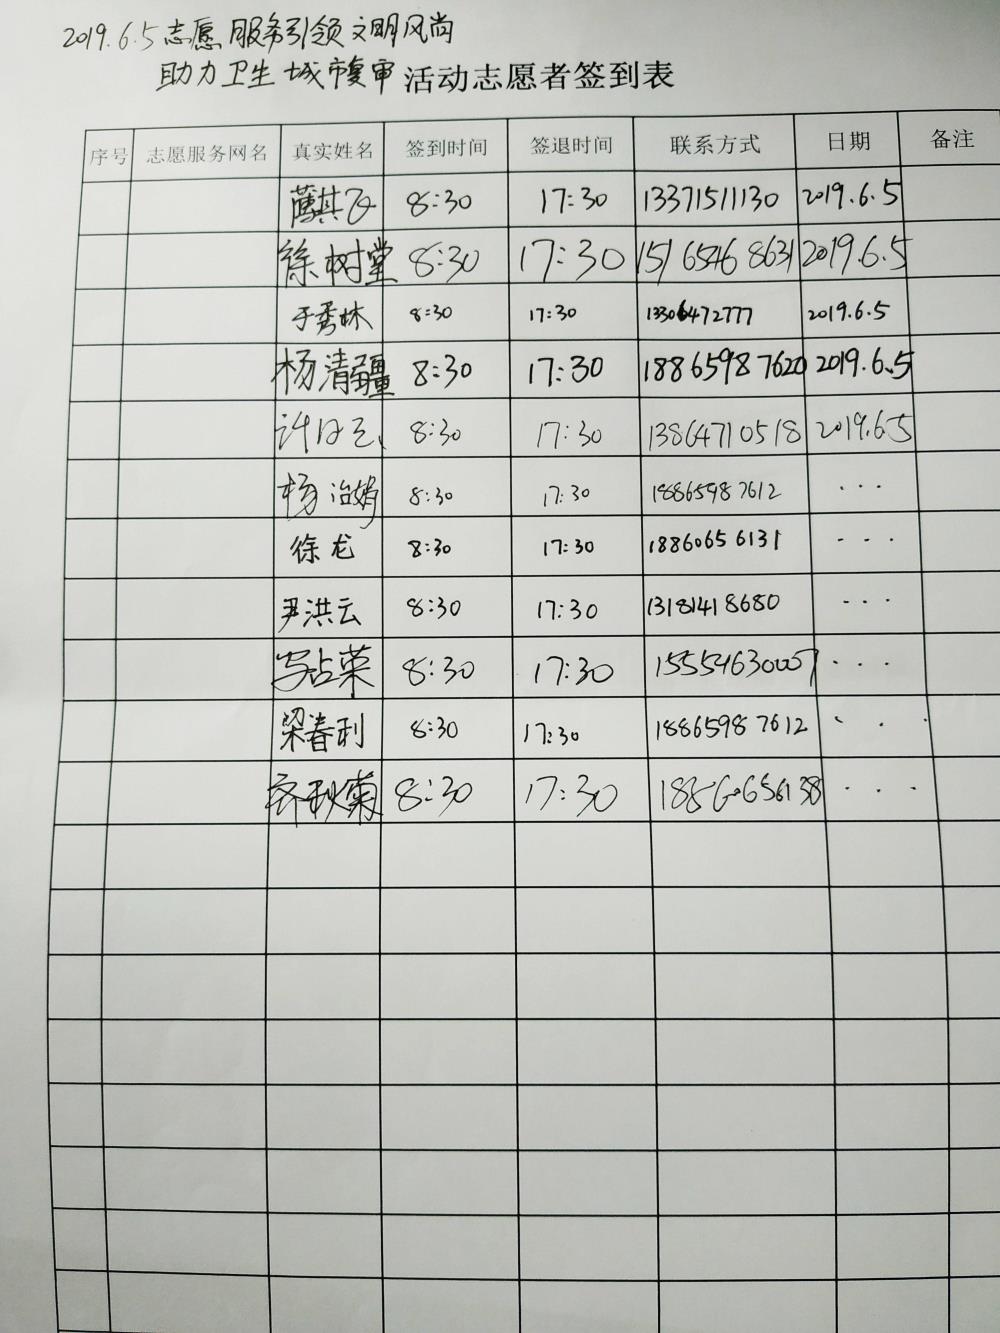 2019.6.5志愿服务引领文明风尚
助力卫生城市复审活动志愿者签到表
序号 志愿服务网名 真实姓名 签到时间 签退时间 联系方式 日期 备注
其飞 8:30 17:30 13371511130 2019.6.5
徐树堂 8:30 17:30 15165468631 2019.6.5
于秀林 8:30 17:30 13306472777 2019.6.5
杨清疆 8:30 17:30 18865987620 2019.6.5
许 8:30 17:30 13864710518 2019.6.5
杨治娟 8:30 17:30 18865987612 ···
徐龙 8:30 17:30 18860656131 ···
尹洪云 8:30 17:30 13181418680 ···
占荣 8:30 17:30 15554630007 ···
梁春利 8:30 17:30 18865987612 ···
齐秋菊 8:30 17:30 ···